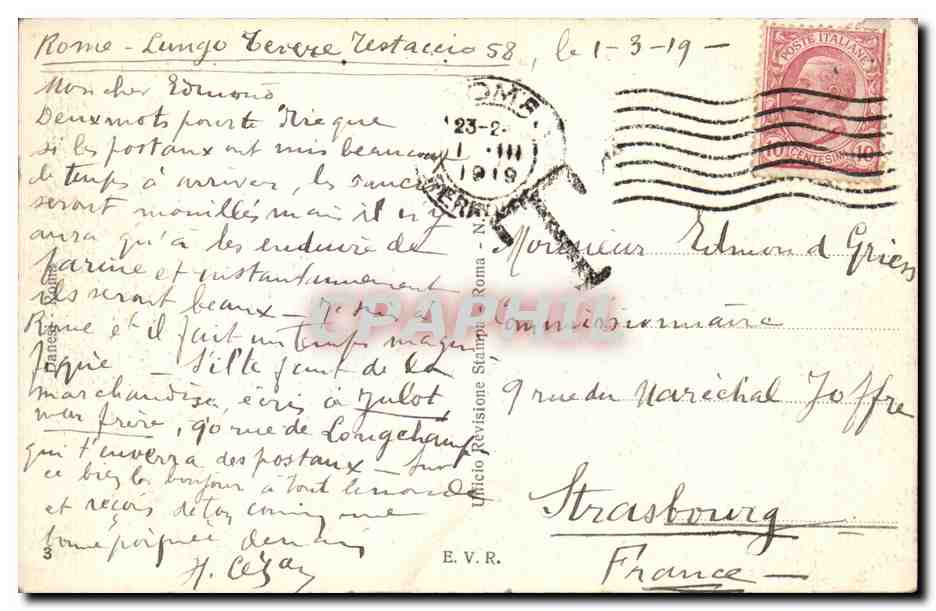 Rome - Lungo Tevere Testaccio 58, le 1-3-19 -
Mon cher Edmond
Deux mots pour te dire que
si les postaux ont mis beaucoup
de temps à arriver, les
seront mouillés mais il n'y
aura qu'à les enduire de
farine et instantanément
ils seront beaux - Je suis à
Rome et il fait un temps magni
fique - S'il te faut de la
marchandise, écris à Julot
mon frère, 90 rue de Longchamp
qui t'enverra des postaux - Sur
ce bien le bonjour à tout le monde
et reçois de ton comme une
bonne poignée de main
H. César
POSTE ITALIANE
10 CENTESIMI 10
ROMA
23-2
1 III
1919
FERROVIA
T
Monsieur Edmond Griess
Commissionnaire
9 rue du Maréchal Joffre
Strasbourg
France -
Danesi Roma
Ufficio Revisione Stampa Roma - N.
CPAPHIL
3
E. V. R.